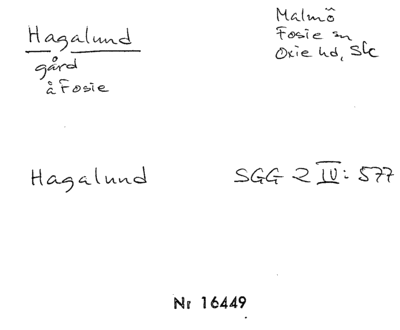 Hagalund
gård
å Fosie
Malmö
Fosie sn
Oxie hd, Skåne
Hagalund
SGG 2 IV: 577
Nr 16449